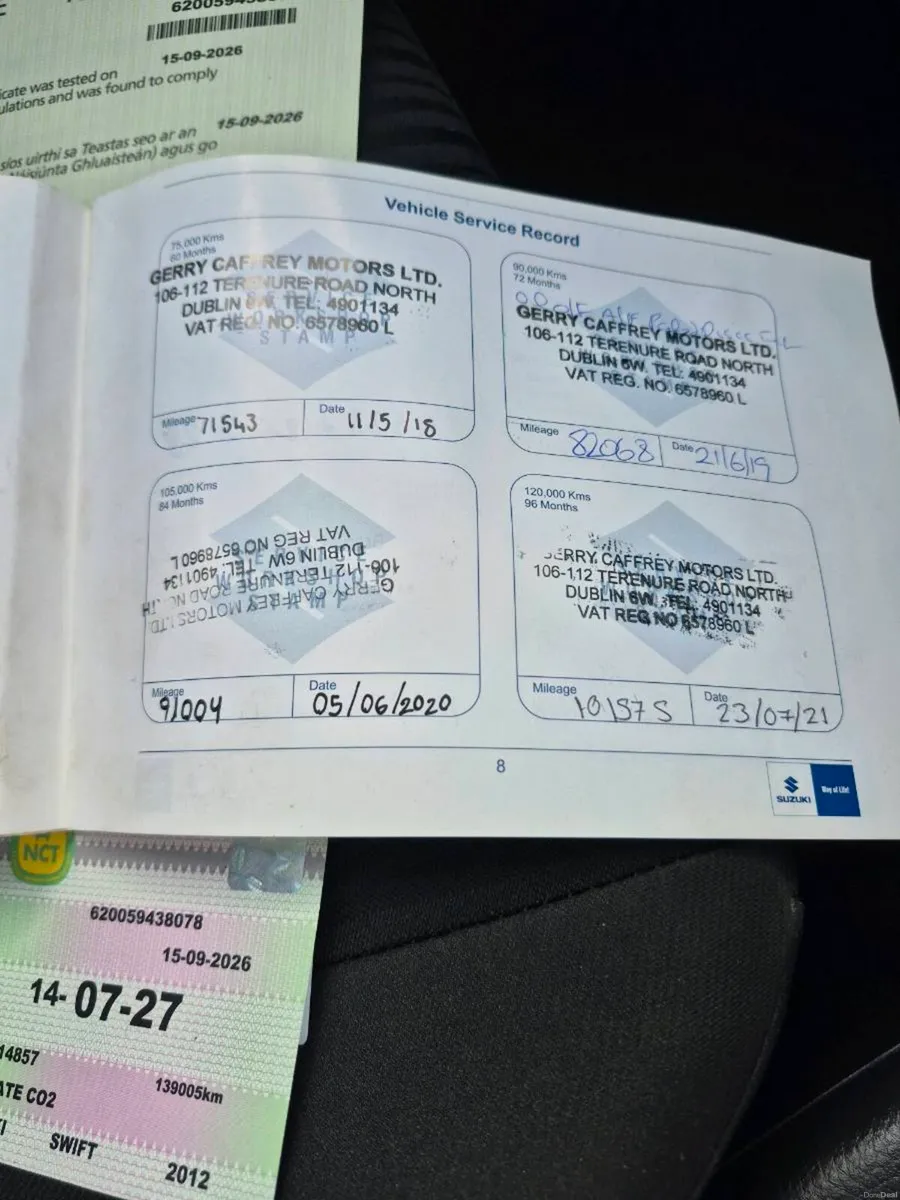 15-09-2026
icate was tested on
ulations and was found to comply
15-09-2026
síos uirthi sa Teastas seo ar an
Náisiúnta Ghluaisteán) agus go
Vehicle Service Record
75,000 Kms
60 Months
GERRY CAFFREY MOTORS LTD.
106-112 TERENURE ROAD NORTH
DUBLIN 6W. TEL: 4901134
VAT REG. NO. 6578960 L
STAMP
Mileage 71543
Date 11/5/18
90,000 Kms
72 Months
GERRY CAFFREY MOTORS LTD.
106-112 TERENURE ROAD NORTH
DUBLIN 6W. TEL: 4901134
VAT REG. NO. 6578960 L
Mileage 82068
Date 21/6/19
105,000 Kms
84 Months
GERRY CAFFREY MOTORS LTD.
106-112 TERENURE ROAD NORTH
DUBLIN 6W TEL: 4901134
VAT REG NO 6578960 L
Mileage 91004
Date 05/06/2020
120,000 Kms
96 Months
GERRY CAFFREY MOTORS LTD.
106-112 TERENURE ROAD NORTH
DUBLIN 6W. TEL: 4901134
VAT REG NO 6578960 L
Mileage 101575
Date 23/07/21
8
SUZUKI
Way of Life!
NCT
620059438078
15-09-2026
14-07-27
14857
139005km
ATE CO2
SWIFT
2012
DoneDeal